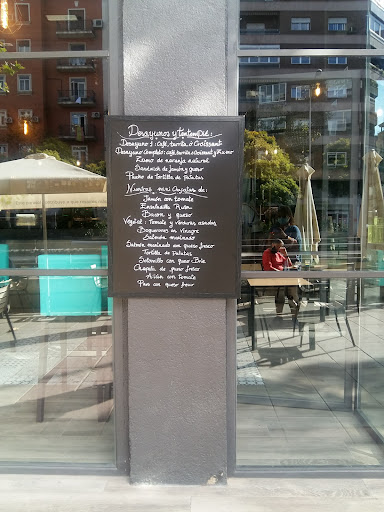 Desayunos y tentempié:
Desayuno 1: café, barrita ó Croissant
Desayuno Completo: café, barrita ó Croissant y Zumo
Zumo de naranja natural
Sandwich de jamón y queso
Pincho de tortilla de patatas
Nuestras mini chapatas de:
Jamón con tomate
Ensaladilla
Bacon y queso
Vegetal: Tomate y verduras asadas
Boquerones en vinagre
Salmón marinado
Salmón marinado con queso fresco
Tortilla de Patatas
Solomillo con queso Brie
Chapata de queso fresco
Atún con tomate
con queso